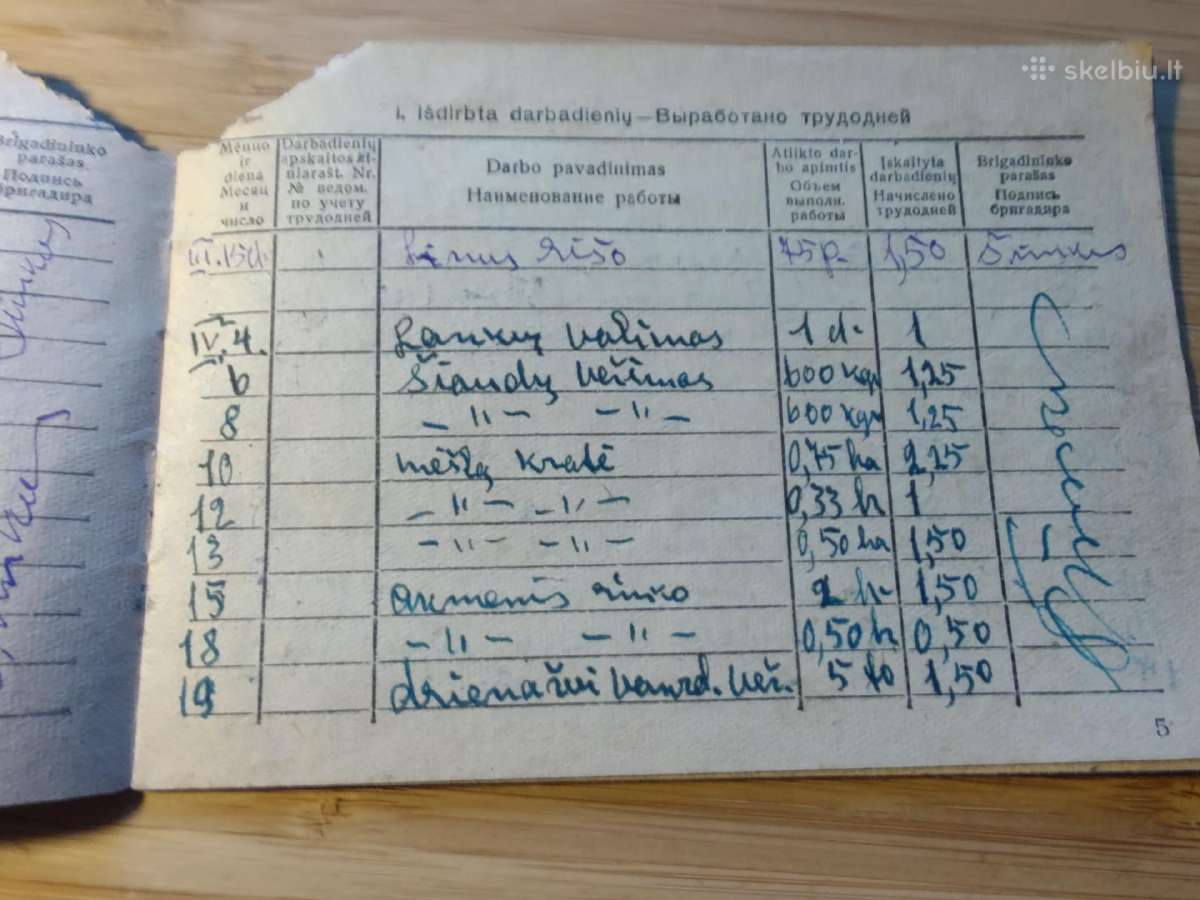 skelbiu.lt
Brigadininko
parašas.
Подпись
бригадира
I. Išdirbta darbadienių — Выработано трудодней
Mėnuo
ir
diena
Месяц
и
число
Darbadienių
apskaitos ži-
niarašt. Nr.
№ ведом.
по учету
трудодней
Darbo pavadinimas
Наименование работы
Atlikto dar-
bo apimtis
Объем
выполн.
работы
Įskaityta
darbadienių
Начислено
трудодней
Brigadininko
parašas
Подпись
бригадира
III.15d. Linus rišo 75 p. 1,50
IV 4. Lankų valimas 1 d. 1
6 Šiaudų vežimas 600 kgr 1,25
8 – " – – " – 600 kgr 1,25
10 mėšlą kratė 0,75 ha 2,25
12 – " – – " – 0,33 h 1
13 – " – – " – 0,50 ha 1,50
15 akmenis rinko 2 h. 1,50
18 – " – – " – 0,50 h 0,50
19 vež. 5 1,50
5